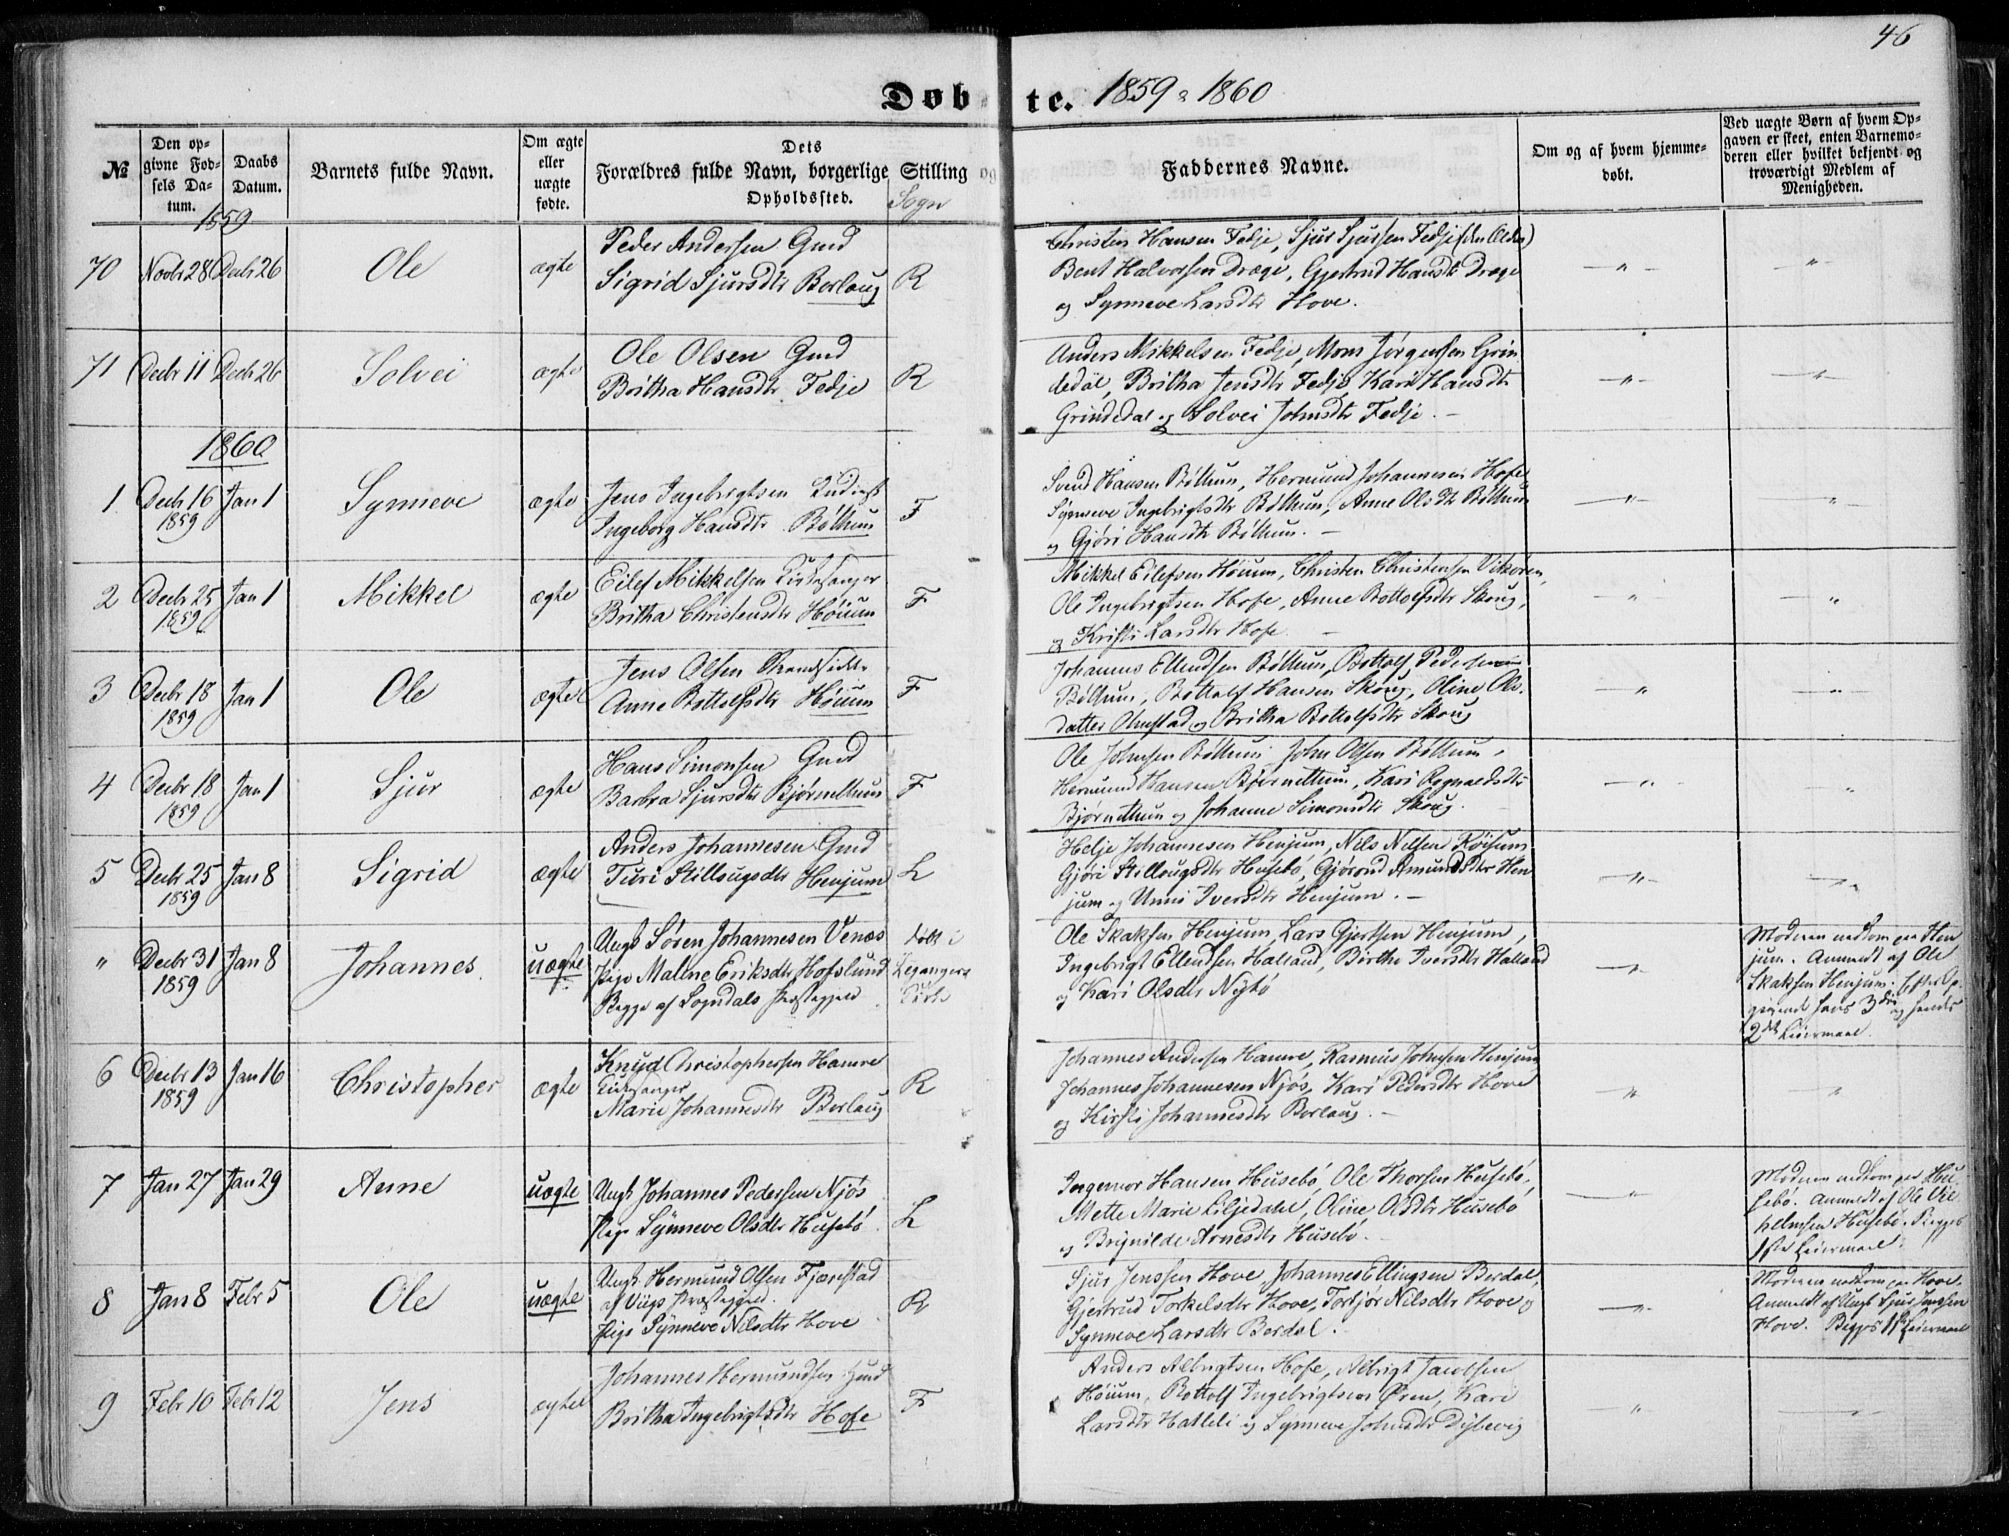 46
Døbte. 1859 & 1860
№
Den op-
givne Fød-
sels Da-
tum.
Daabs
Datum.
Barnets fulde Navn.
Om ægte
eller
uægte
fødte.
Dets
Forældres fulde Navn, borgerlige Stilling og
Opholdssted.
Sogn
Faddernes Navne.
Om og af hvem hjemme-
døbt.
Ved uægte Børn af hvem Op-
gaven er skeet, enten Barnemo-
deren eller hvilket bekjendt og
troværdigt Medlem af
Menigheden.
1859
70 Novbr 28 Decbr 26 Ole ægte
Peder Andersen Gmd
Sigrid Sjursdtr Borlaug R
Christen Hansen Fedje, Sjur Sjursen Fedje (den Ældre)
Bent Halvorsen Drægi, Gjertrud Hansdtr Drægi
og Synneve Larsdtr Hove.
71 Decbr 11 Decbr 26 Solvei ægte
Ole Olsen Gmd
Britha Hansdtr Fedje R
Anders Mikkelsen Fedje, Mons Jørgensen Grin-
dedal, Britha Jensdtr Fedje Kari Hansdtr
Grindedal og Solvei Johnsdtr Fedje.
1860
1 Decbr 16 1859 Jan 1 Synneve ægte
Jens Ingebrigtsen
Ingeborg Hansdtr Bøthun F
Svend Hansen Bøthun, Hermund Johannesen Hofe
Synneve Ingebrigtsdtr Bøthun, Anne Olsdtr Bøthun
og Gjøri Hansdtr Bøthun.
2 Decbr 25 1859 Jan 1 Mikkel ægte
Eilef Mikkelsen Kirkesanger
Britha Christensdtr Høium F
Mikkel Eilefsen Høium, Christen Christensen Vikøren,
Ole Ingebrigtsen Hofe, Anne Bottolfsdtr Skoug,
og Kristi Larsdtr Hofe.
3 Decbr 18 1859 Jan 1 Ole ægte
Jens Olsen Strandsidder
Anne Bottolfsdtr Høium F
Johannes Ellendsen Bøthun, Bottolf Pedersen
Bøthun, Bottolf Hansen Skoug, Oline Ols-
datter Ølmstad og Britha Bottolfsdtr Skoug
4 Decbr 18 1859 Jan 1 Sjur ægte
Hans Simonsen Gmd
Barbra Sjursdtr Bjørnethun F
Ole Johnsen Bøthun, John Olsen Bøthun,
Hermund Hansen Bjørnethun, Kari Rognaldsdtr
Bjørnethun og Johanne Simonsdtr Skoug.
5 Decbr 25 1859 Jan 8 Sigrid ægte
Anders Johannesen Gmd
Turi Stillaugsdtr Henjum L
Helje Johannesen Henjum, Nils Nilsen Røisum
Gjøri Stillougsdtr Husebø, Gjørond Amundsdtr Hen-
jum og Unni Iversdtr Henjum.
" Decbr 31 1859 Jan 8 Johannes. uægte
Ungk Søren Johannesen Venæs
Pige Malene Eriksdtr Hofslund
Begge af Sogndals Præstegjeld
døbt i
Leganger
Kirke
Ole Skaksen Henjum Lars Gjertsen Henjum,
Ingebrigt Ellendsen Halland, Birthe Iversdtr Halland
og Kari Olsdtr Nybø
Moderen nedkom paa Hen-
jum. Anmeldt af Ole
Skaksen Henjum. Efter Op-
givende hans 3die og hendes
2det Leiermaal.
6 Decbr 13 1859 Jan 16 Christopher ægte
Knud Christophersen Hamre
Kirkesanger
Marie Johannesdtr Borlaug R
Johannes Andersen Hamre, Rasmus Johnsen Henjum
Johannes Johannesen Njøs, Kari Pedersdtr Hove
og Kirsti Johannesdtr Borlaug.
7 Jan 27 Jan 29 Anne uægte
Ungk Johannes Pedersen Njøs
Pige Synneve Olsdtr Husebø L
Ingemor Hansen Husebø, Ole Thorsen Husebø,
Mette Marie Liljedahl, Oline Olsdtr Husebø
og Brynilde Arnesdtr Husebø.
Moderen nedkom paa Hu-
sebø. Anmeldt af Ole Vil-
helmsen Husebø. Begges
1ste Leiermaal.
8 Jan 8 Febr 5 Ole uægte
Ungk Hermund Olsen Fjærestad
af Viigs Præstegjeld.
Pige Synneve Nilsdtr Hove R
Sjur Jenssen Hove, Johannes Ellingsen Berdal,
Gjertrud Torkelsdtr Hove, Torbjør Nilsdtr Hove og
Synneve Larsdtr Berdal.
Moderen nedkom paa Hove.
Anmeldt af Ungk Sjur Jenssen
Hove. Begges 1ste Leiermaal
9 Febr 10 Febr 12 Jens ægte
Johannes Hermundsen Gmd
Britha Ingebrigtsdtr Hofe F
Anders Albrigtsen Hofe, Albrigt Jacobsen
Høium, Bottolf Ingebrigtsen Øren, Kari
Larsdtr Hatleli og Synneve Johnsdtr Dybevig